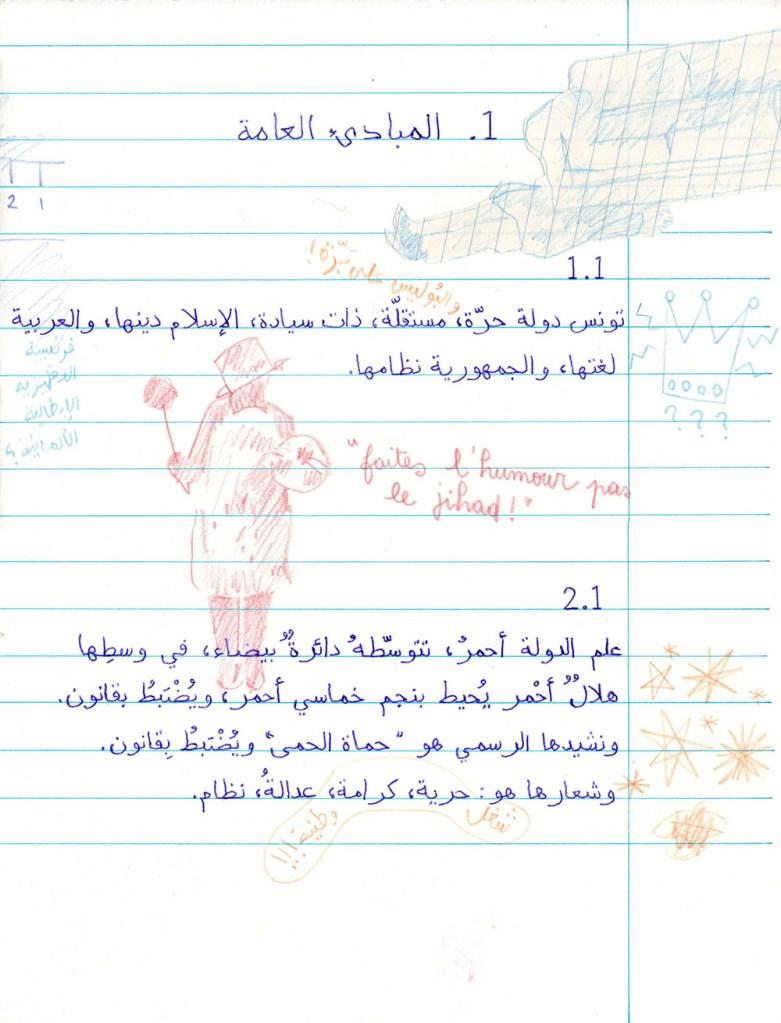 1. المبادئ العامة
2 1
والبُوليس على بَرّة!
1.1
تونس دولة حرّة، مستقلّة، ذات سيادة، الإسلام دينها، والعربية
لغتها، والجمهورية نظامها.
فرنسية
الإيطالية
الألمانية؟
???
"faites l'humour pas
le jihad!"
2.1
علم الدولة أحمرُ، تتوسّطهُ دائرةٌ بيضاء، في وسطِها
هلالٌ أحْمر يُحيط بنجم خماسي أحمر، ويُضْتبطُ بقانون.
ونشيدها الرسمي هو "حماة الحمى" ويُضْتبطُ بِقانون.
وشعارها هو: حرية، كرامة، عدالةُ، نظام.
شغل
وطنية!!!